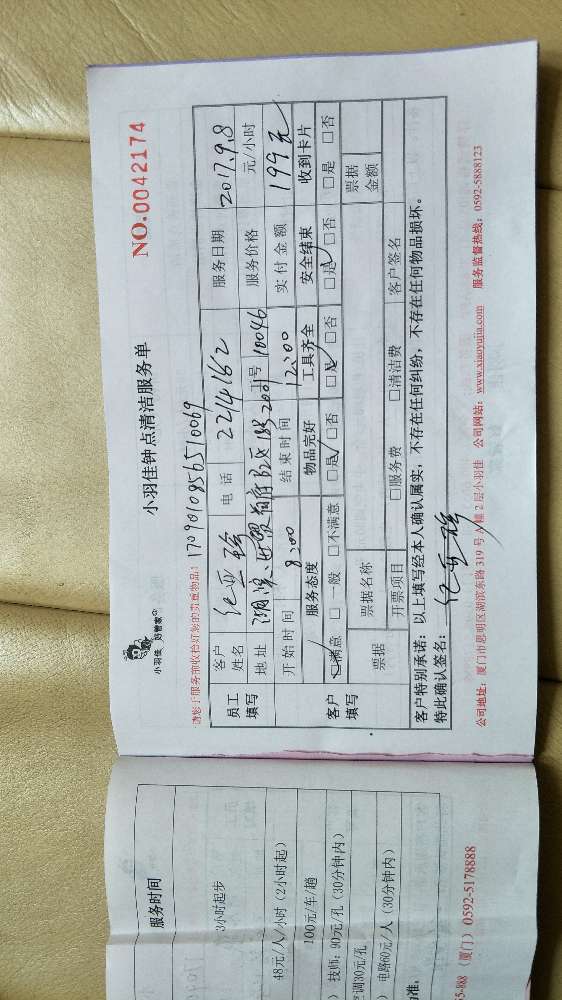 小羽佳 好管家
小羽佳钟点清洁服务单
NO.0042174
请您于服务前收拾好您的贵重物品!
1709010856510069
员工填写
客户姓名
电话 2214162
服务日期 2017.9.8
地址
工号 10046
服务价格 元/小时
开始时间 8:00
结束时间 12:00
实付金额 199元
客户填写
服务态度 物品完好 工具齐全 安全结束 收到卡片
□满意 □一般 □不满意 □是 □否 □是 □否 □是 □否 □是 □否
票据
票据名称
票据金额
开票项目 □服务费 □清洁费 客户签名
客户特别承诺:以上填写经本人确认属实,不存在任何纠纷,不存在任何物品损坏。
特此确认签名:
公司地址:厦门市思明区湖滨东路 319 号 A 幢 2 层小羽佳 公司网站:www.xiaoyujia.com 服务监督热线:0592-5888123
服务时间
3小时起步
48元/人/小时(2小时起)
100元/车/趟
技师:90元/孔(30分钟内)
空调30元/孔
电路60元/人(30分钟内)
(厦门)0592-5178888